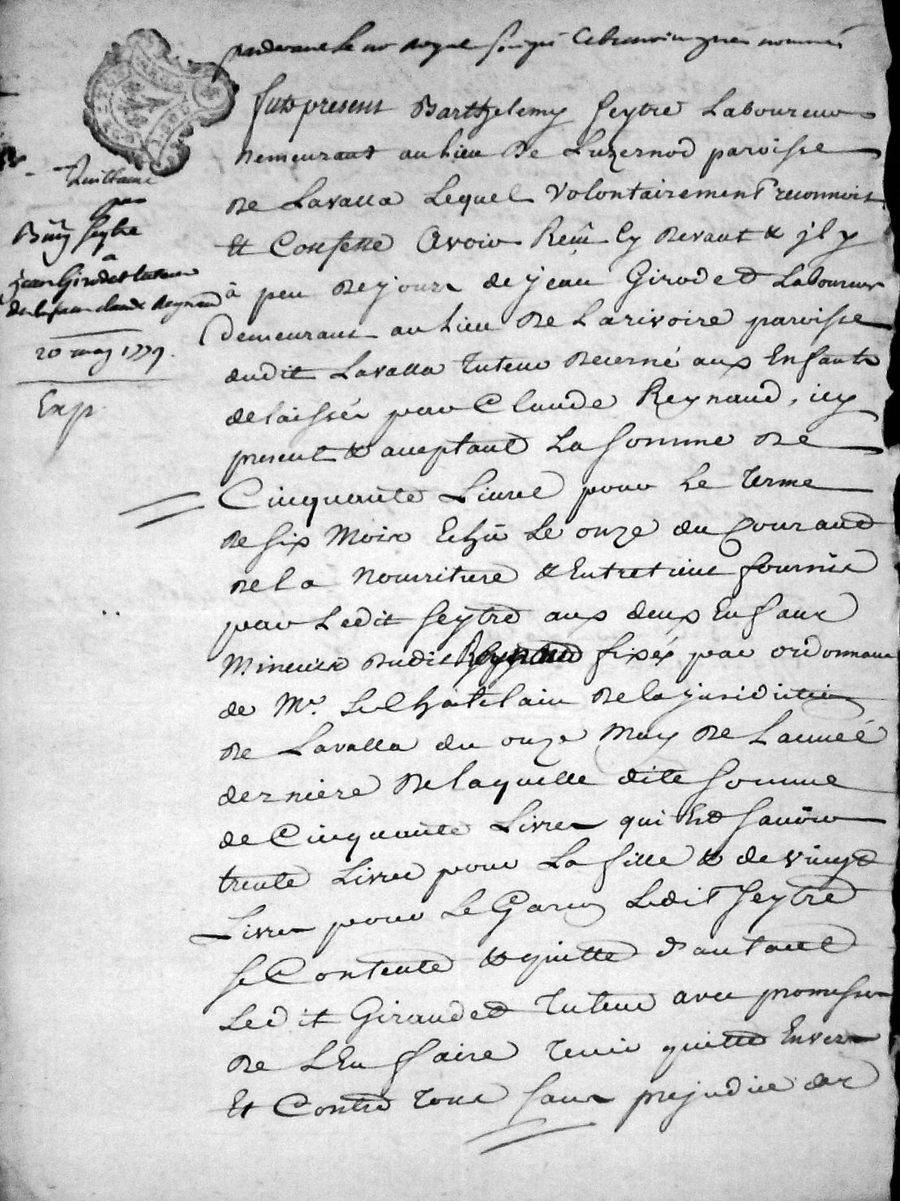 pardevant le no.re Royal soussigné & les témoins après nommés
fut present Barthelemy Seytre Laboureur
Demeurant au lieu De Luzernod paroisse
De Lavalla Lequel Volontairement reconnoit
Et Confesse Avoir Reçu Cy Devant & jl y
à peu De jours de jean Girodet Laboureur
demeurant au lieu De Larivoire paroisse
dudit Lavalla Tuteur Decerné aux Enfants
delaissés par Claude Reynaud, icy
present & aceptant La Somme De
Cinquante Livres pour Le Terme
De six Mois Echû Le onze du Courant
De la Nourriture & Entretient fournie
par Ledit Seytre aux deux Enfans
Mineurs Dudit Reynaud fixés par ordonnance
de Mr. Le Châtelain De la jurisdiction
De Lavalla du onze May De L'année
derniére De laquelle dite Somme
de Cinquante Livres qui Est Savoir
trente Livres pour La fille & de vingt
Livres pour Le Garçon Ledit Seytre
se Contente & quitte D'autant
Ledit Giraudet Tuteur avec promesse
De L'En faire Tenir quitte Envers
Et Contre Tous Sans prejudice des
Quittance
par
B.my Seytre
à
jean Girodet tuteur
des h. feu claude Reynaud
20 may 1779.
Exp.